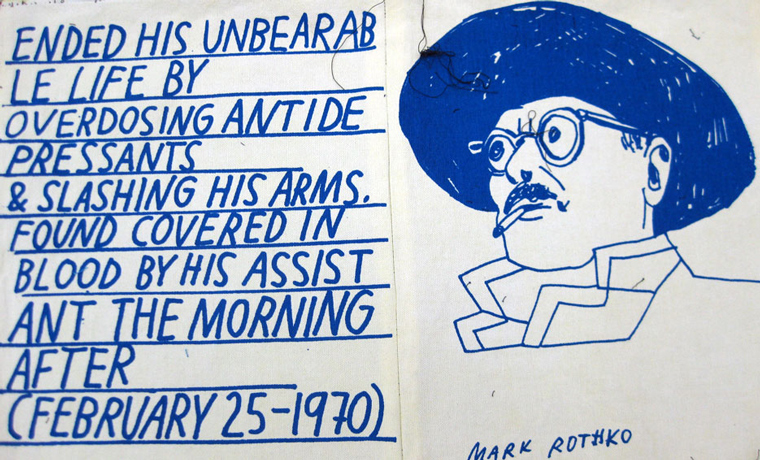 ENDED HIS UNBEARAB
LE LIFE BY
OVERDOSING ANTIDE
PRESSANTS
& SLASHING HIS ARMS.
FOUND COVERED IN
BLOOD BY HIS ASSIST
ANT THE MORNING
AFTER
(FEBRUARY 25-1970)
MARK ROTHKO